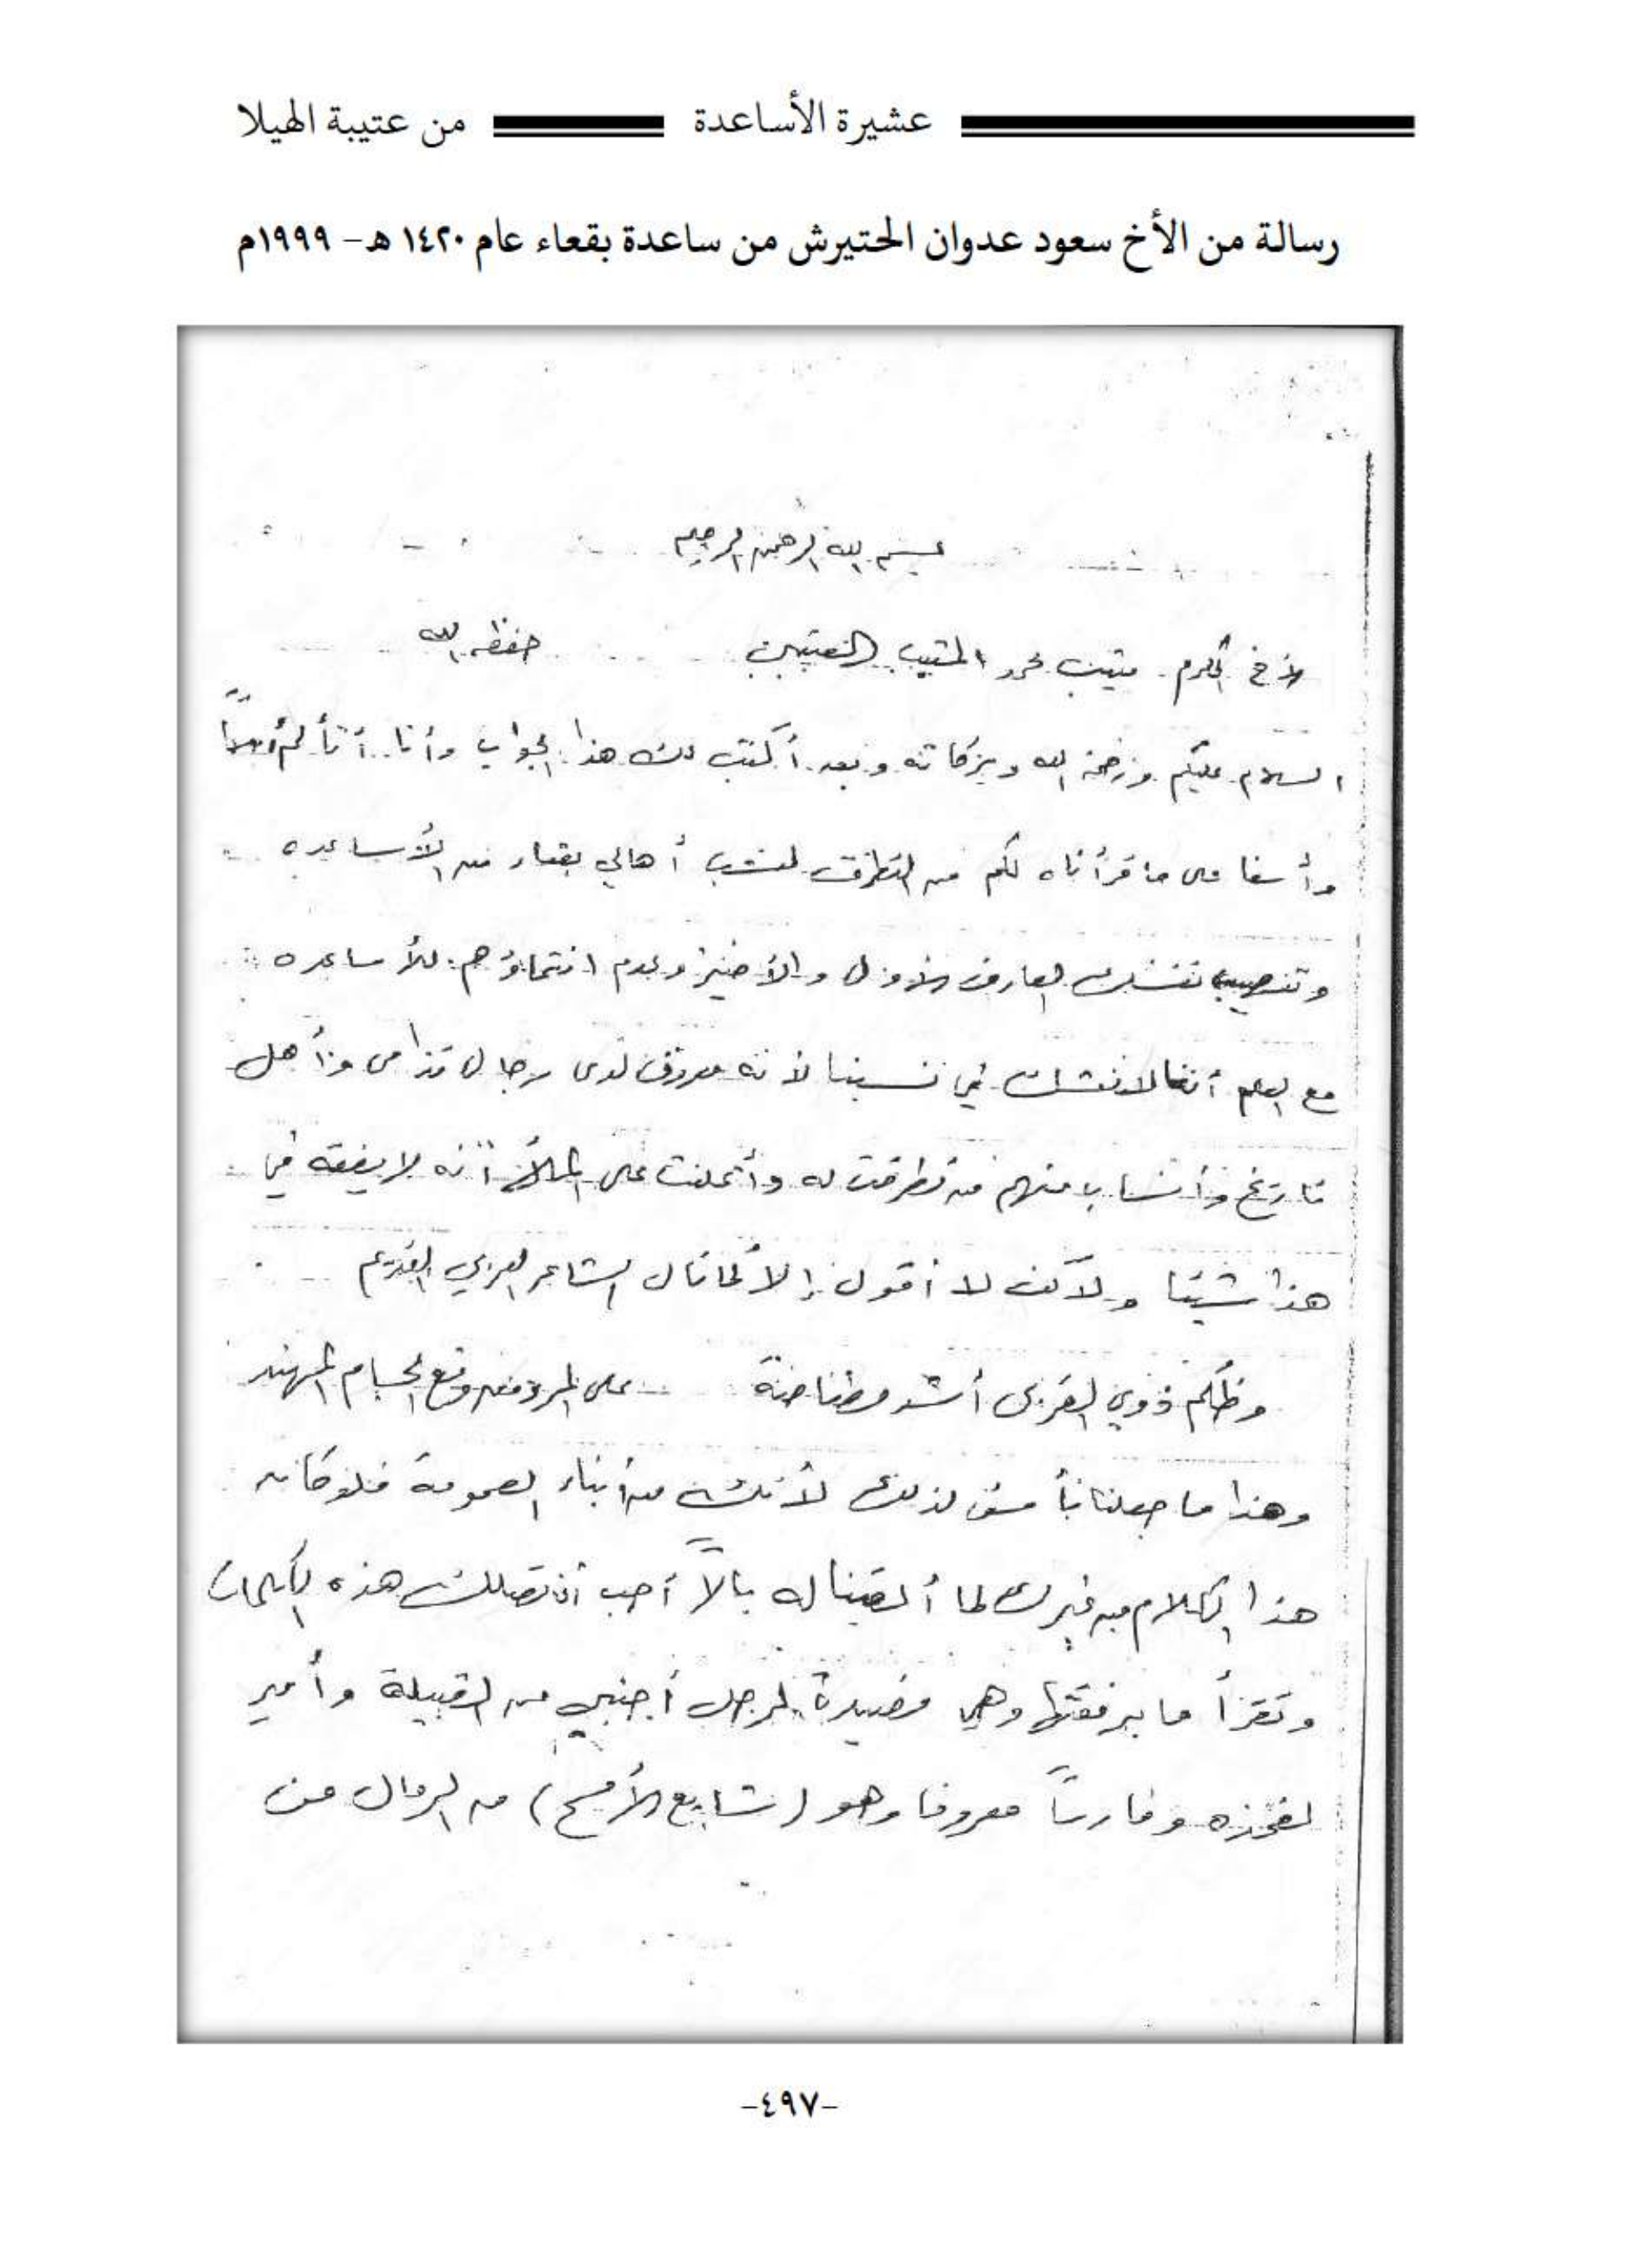 عشيرة الأساعدة من عتيبة الهيلا
رسالة من الأخ سعود عدوان الحتيرش من ساعدة بقعاء عام ١٤٢٠ هـ - ١٩٩٩م
بسم الله الرحمن الرحيم
الأخ المكرم حفظه الله
السلام عليكم ورحمة الله وبركاته وبعد أكتب لك هذا الجواب وأنا
وأسفا على ما قرأناه لكم من التطرق لنسب أهالي بقعاء من الأساعده
وتنصيب نفسك العارف الأول والأخير وعدم انتماؤهم للأساعده
مع العلم أننا لا نشك في نسبنا لأنه معروف لدى رجال قدامى وأهل
تاريخ وأنساب منهم من تطرقت له وأعلنت على الملأ أنه لا يفقه في
هذا شيئا ولاكن لا أقول إلا كما قال الشاعر العربي القديم
وظلم ذوي القربى أشد مضاضة على المرء من وقع الحسام المهند
وهذا ما جعلنا نأسف لذلك لأنك من أبناء العمومة فلو كان
هذا الكلام من غيرك لما ألقينا له بالاً أحب أن تصلك هذه الكلمات
وتقرأ ما برفقتها وهي قصيدة لرجل أجنبي من القبيلة وأمير
لفخذه وفارساً معروفا وهو (شايع الأمسح) من الرمال من
-٤٩٧-